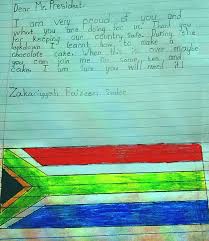 Dear Mr. President.
I am very proud of you and
what you are doing for us. Thank you
for keeping our country safe. During the
lockdown I learnt how to make a
chocolate cake. When this is over maybe
you can join me for some tea and
cake. I am sure you will need it!
Zakariyyah Faizeen